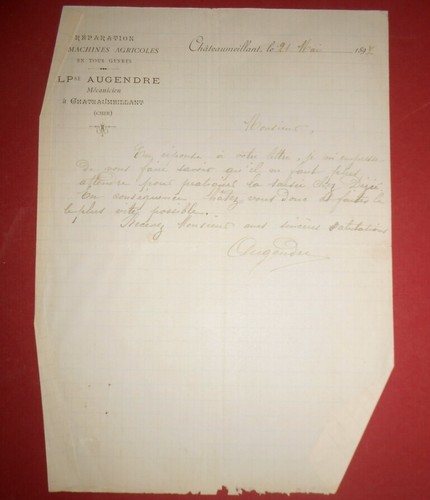 RÉPARATION
MACHINES AGRICOLES
EN TOUS GENRES
L. Pre AUGENDRE
Mécanicien
A CHATEAUMEILLANT
(CHER)
Châteaumeillant, le 21 Mai 189
Monsieur,
En réponse à votre lettre, je m'empresse
de vous faire savoir qu'il ne faut plus
attendre pour pratiquer la
En conséquence, hâtez vous donc et faites le
le plus vite possible.
Recevez Monsieur mes sincères salutations
Augendre